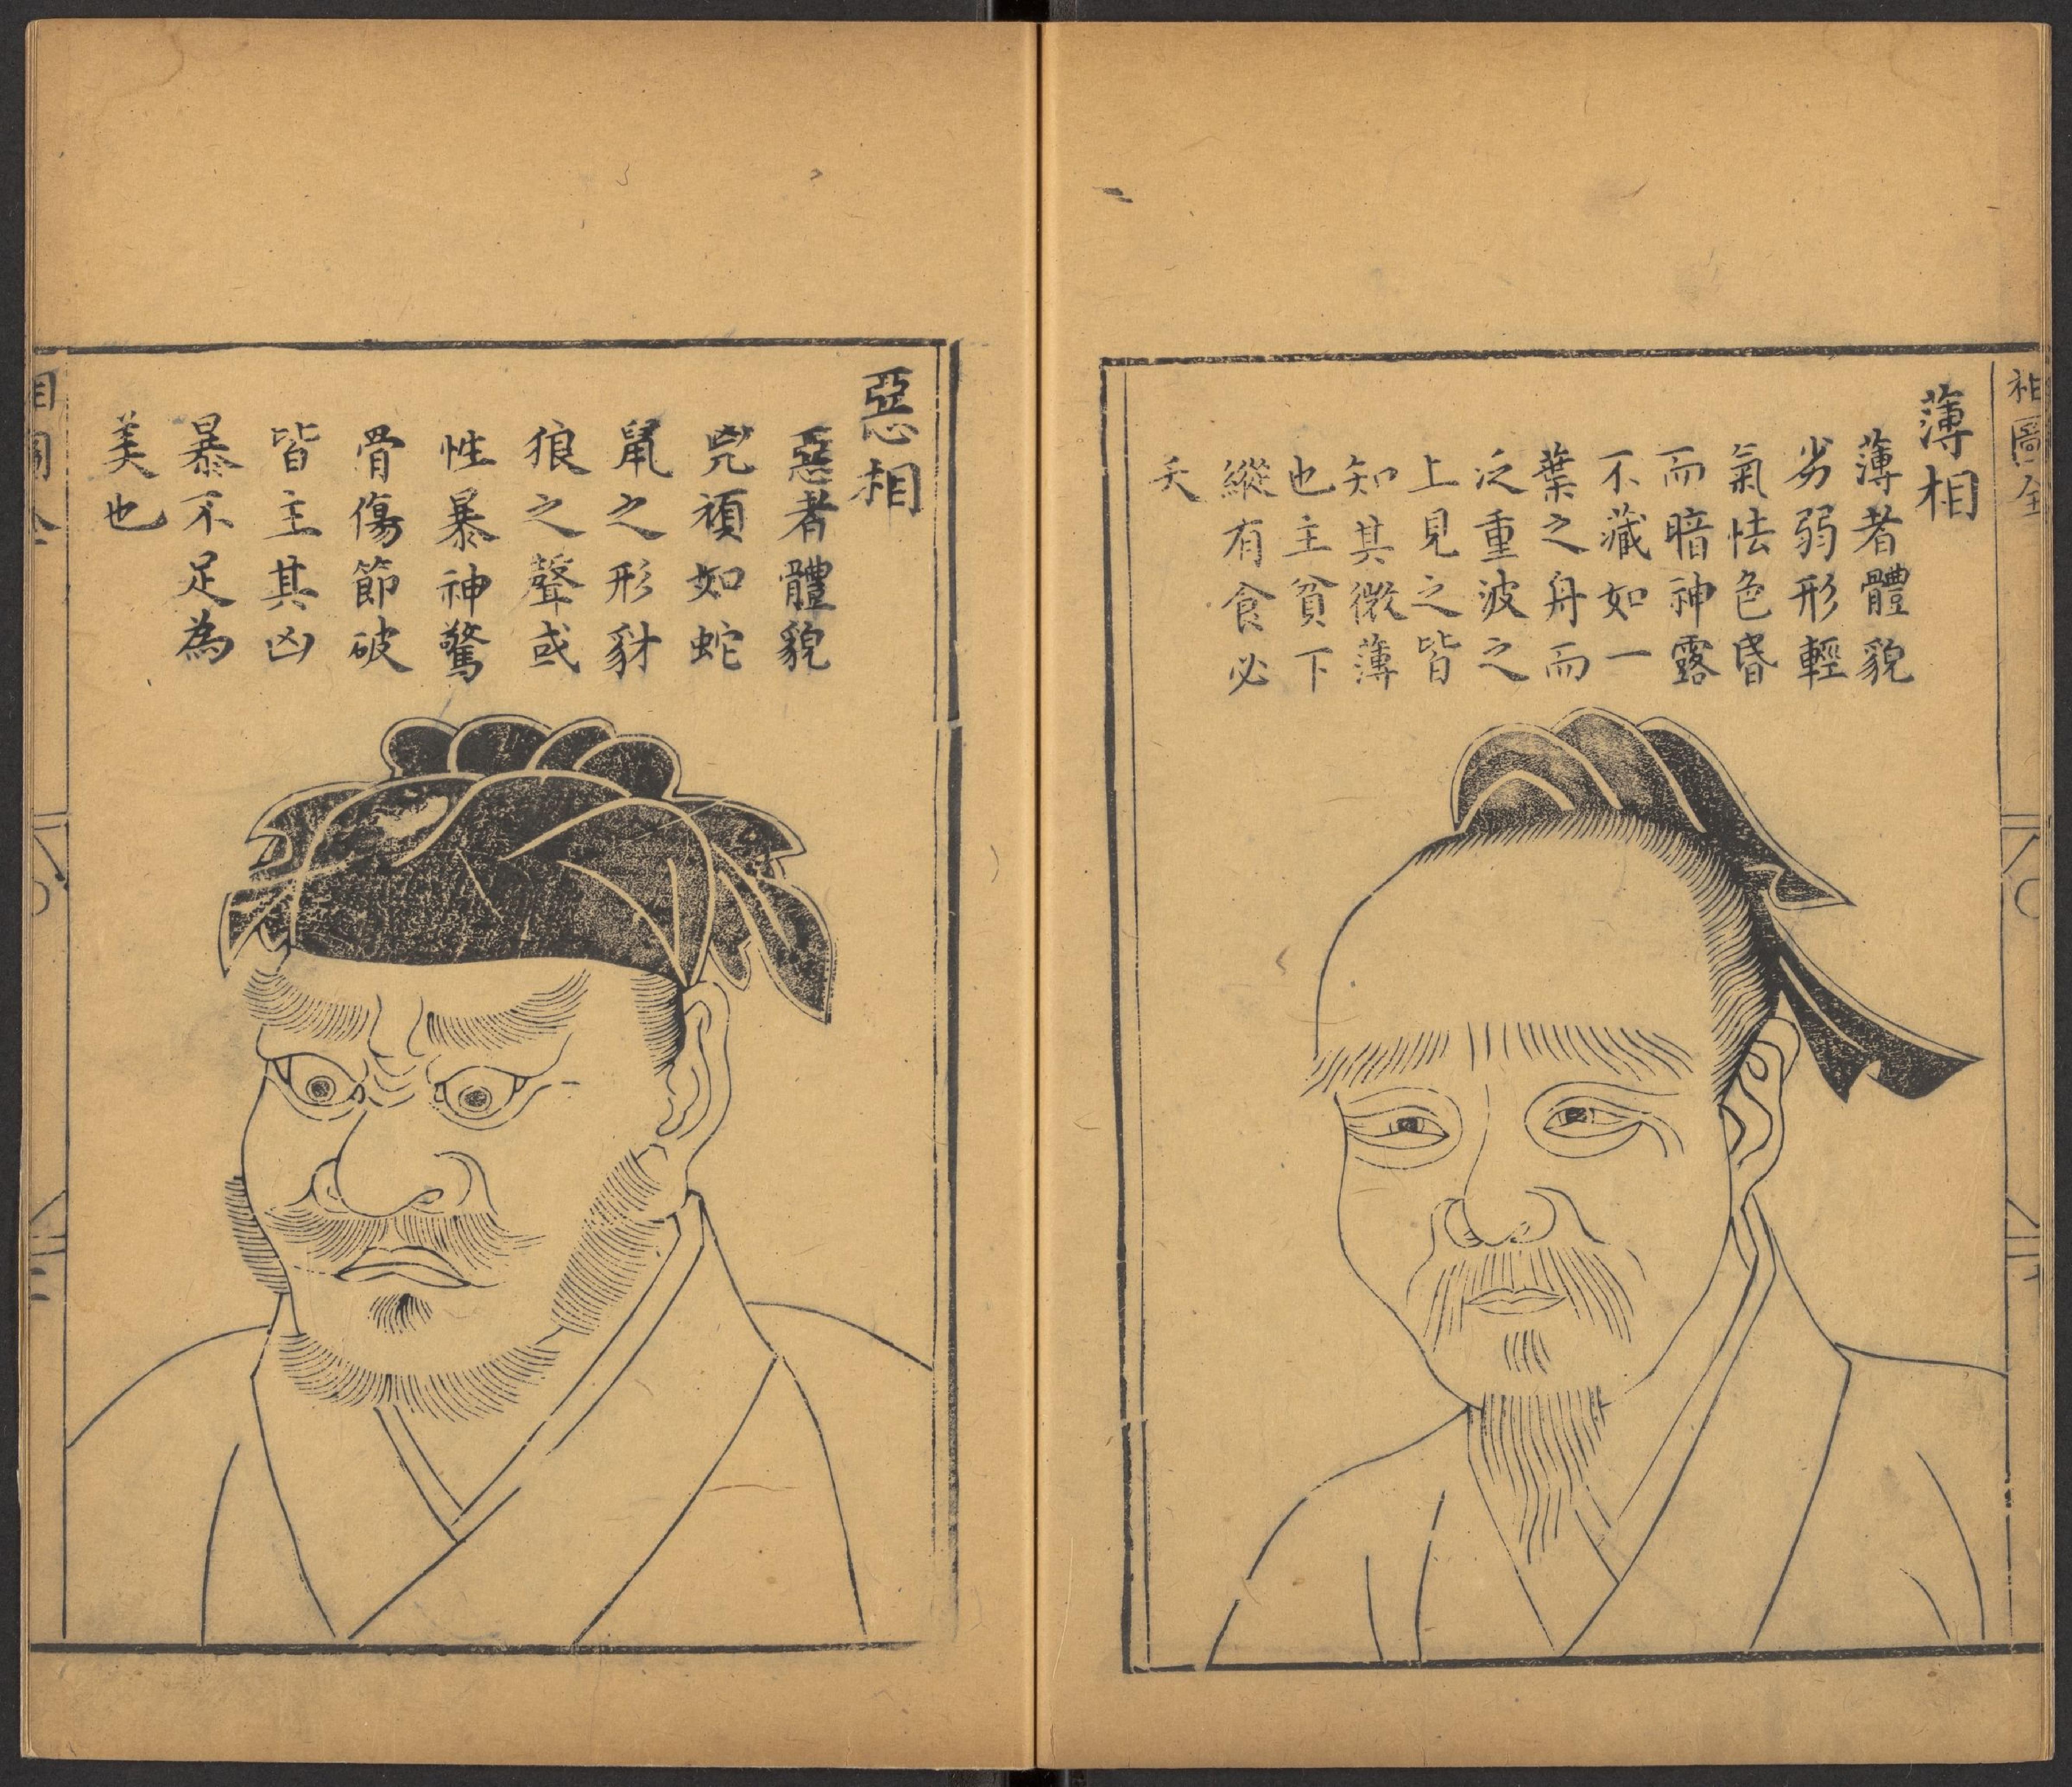 薄相
薄者體貌
劣弱形輕
氣怯色昏
而暗神露
不藏如一
葉之舟而
泛重波之
上見之皆
知其微薄
也主貧下
縱有食必
夭
惡相
惡者體貌
兇頑如蛇
鼠之形豺
狼之聲或
性暴神驚
骨傷節破
皆主其凶
暴不足為
美也